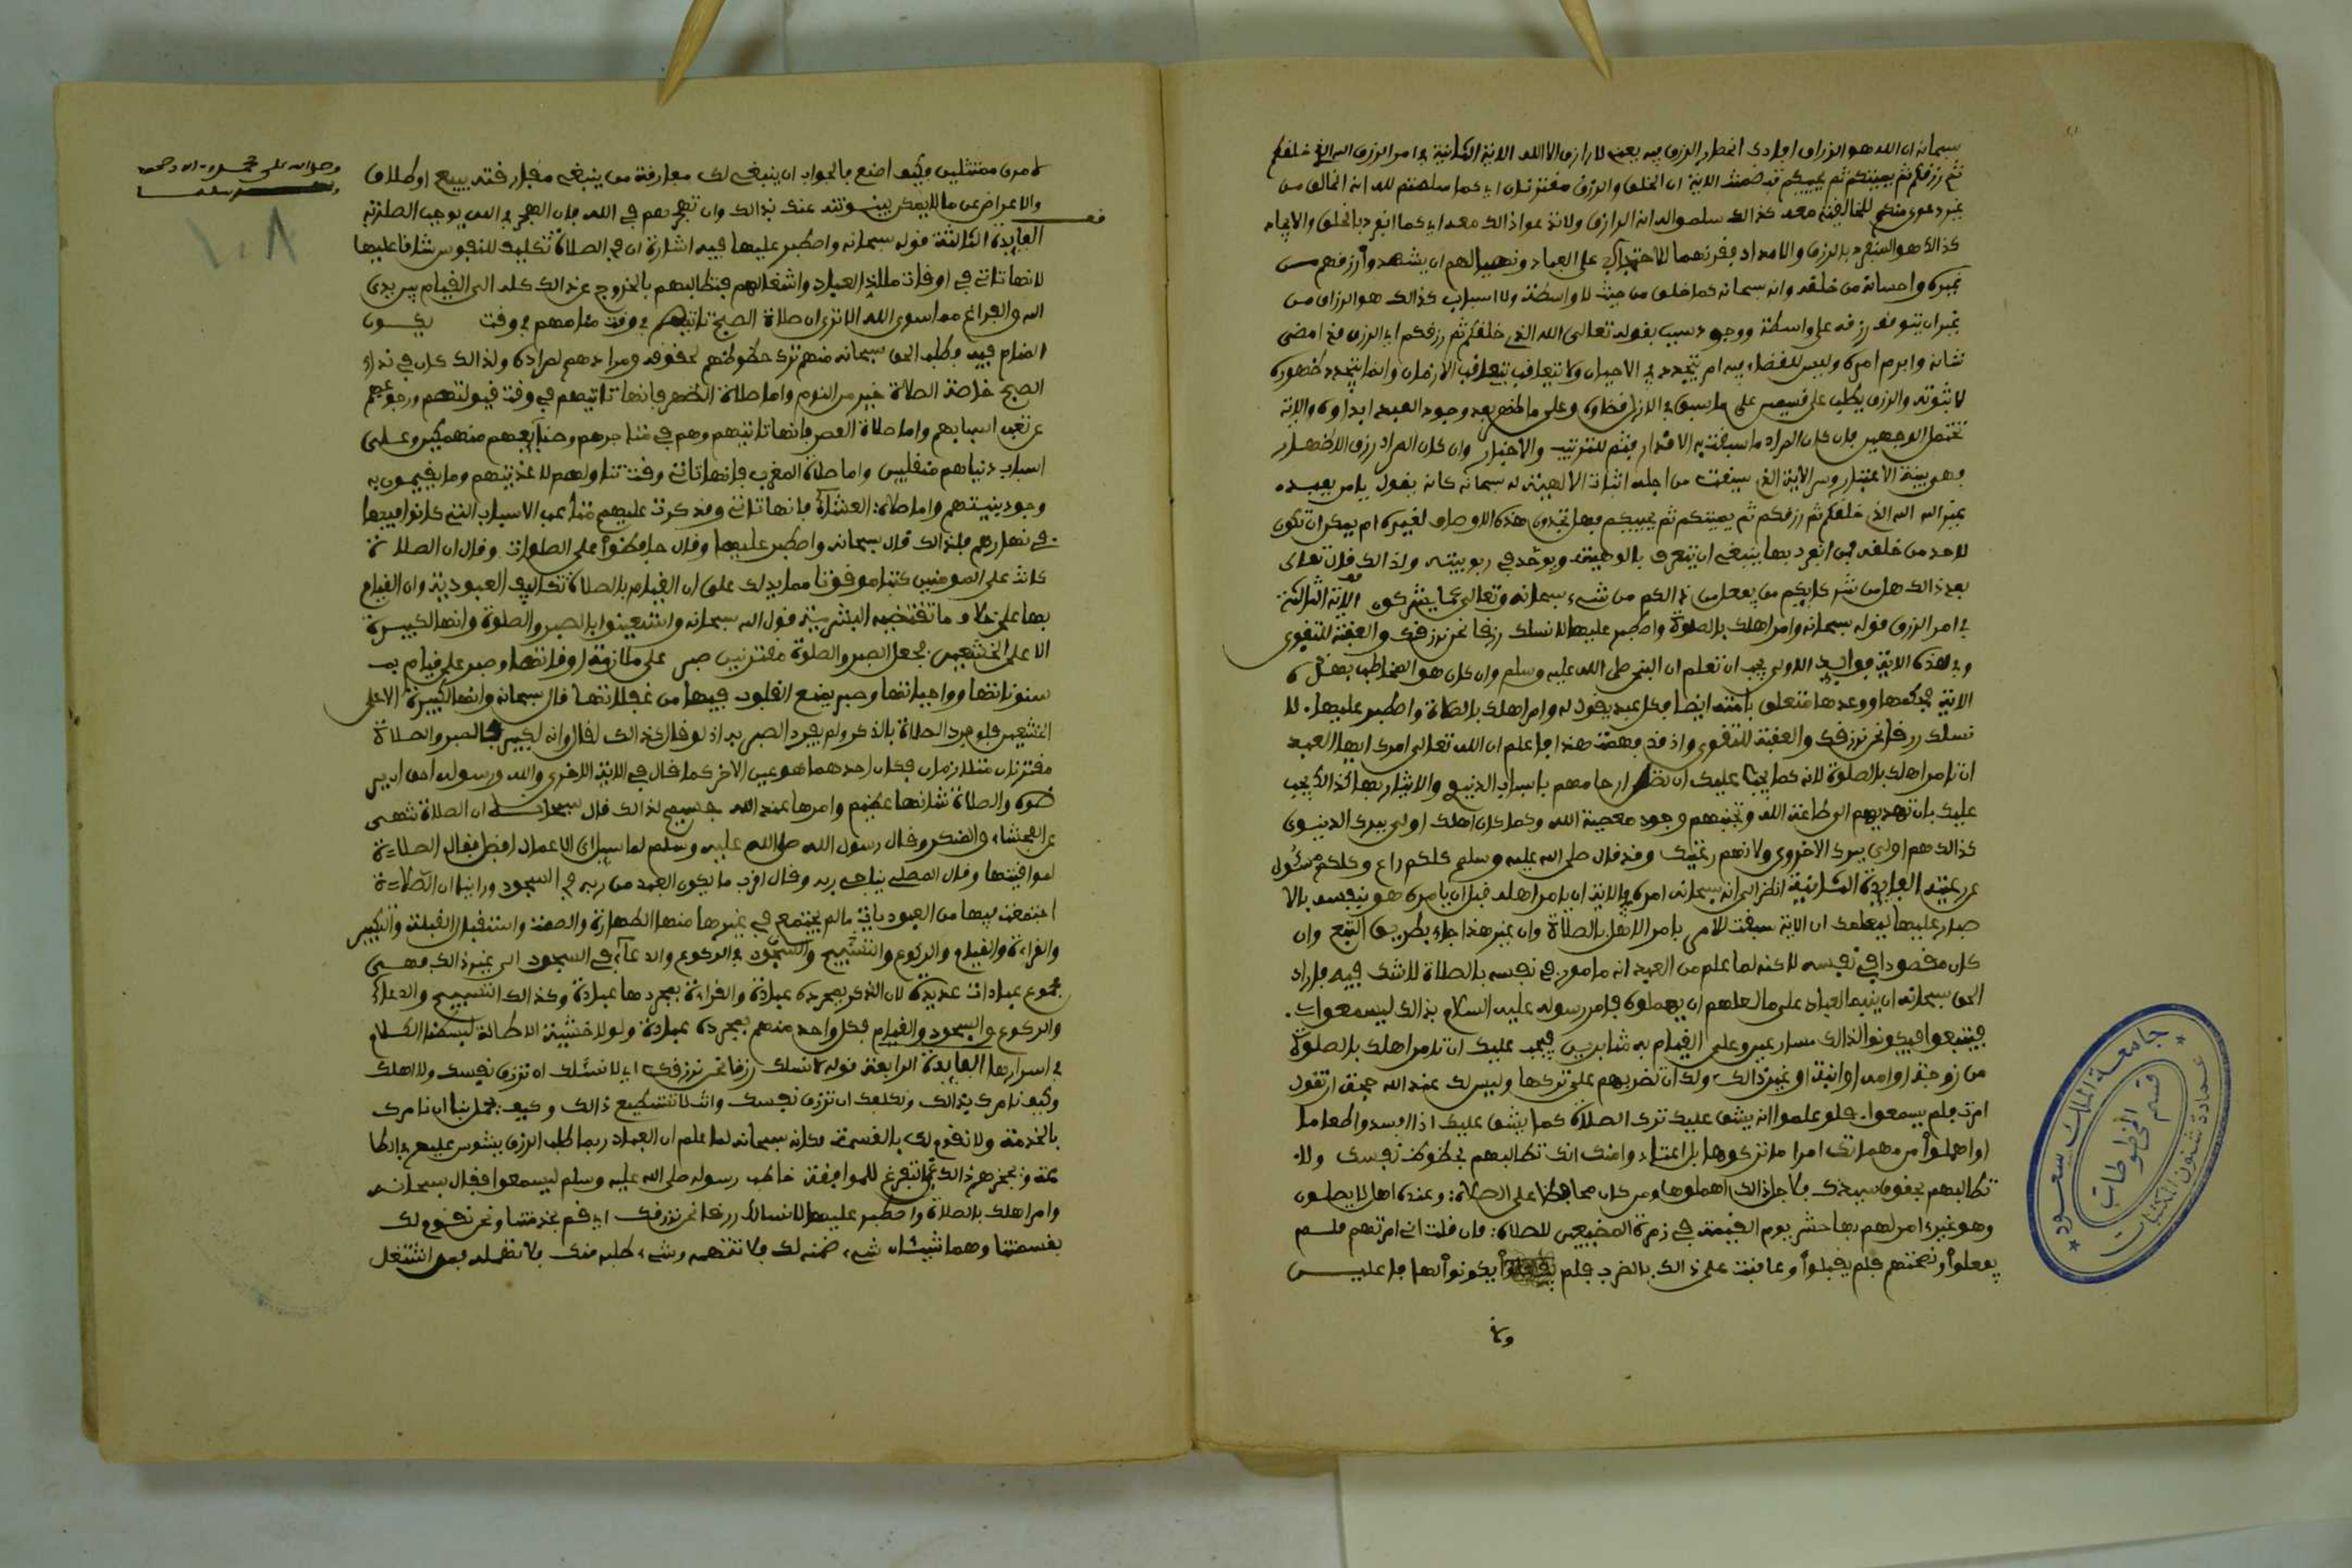 سبحانه ان الله هو الرزاق افادك انحصار الرزق فيه يعني لا رازق الا الله الاية الثانية في امر الرزق الله الذي خلقكم
ثم رزقكم ثم يميتكم ثم يحييكم قد ضمنت الاية ان الخلق والرزق مقترنان اي كما سلمتم لله انه الخالق من
غير دعوى منكم للخالقية معه كذالك سلموا له انه الرازق ولا تدعوا ذالك معه اي كما انفرد بالخلق والايجاد
كذالك هو المنفرد بالرزق والامداد فقرنهما للاحتجاج على العباد ونهيا لهم ان يشهدوا رزقهم من
غيره واحسانه من خلقه وانه سبحانه كما خلق من حيث لا واسطة ولا اسباب كذالك هو الرزاق من
غير ان يتوقف رزقه على واسطة ووجود سبب بقوله تعالى الله الذي خلقكم ثم رزقكم اي الرزق قد امضى
شانه وابرم امره وليس للقضاء فيه امر يتجدد في الاحيان ولا يتعاقب بتعاقب الازمان وانما يتجدد ظهوره
لا ثبوته والرزق يطلب على قسمين على ما سبق في الازل قضاؤه وعلى ما ظهر بعد وجود العبد ابداؤه والاية
تحتمل الوجهين فان كان المراد ما سبقت به الاقدار فثم للترتيب والاخبار وان كان المراد رزق الاظهار
فهي بينة الاعتبار وسر الاية الذي سيقت من اجله اثبات الالهية له سبحانه كانه يقول يا من يعبد
غير الله الله الذي خلقكم ثم رزقكم ثم يميتكم ثم يحييكم فهل تجدون هذه الاوصاف لغيره ام يمكن ان تكون
لاحد من خلقه فمن انفرد بها ينبغي ان يتعرف بالوهيته ويوحد في ربوبيته ولذالك قال تعالى
بعد ذالك هل من شركايكم من يفعل من ذالكم من شيء سبحانه وتعالى عما يشركون الاية الثالثة
في امر الرزق قوله سبحانه وامر اهلك بالصلوة واصطبر عليها لا نسلك رزقا نحن نرزقك والعقبة للتقوى
وفي هذه الاية فوايد الاولى يجب ان تعلم ان النبي صلى الله عليه وسلم وان كان هو المخاطب بهذه
الاية فحكمها ووعدها متعلق بامته ايضا فكل عبد يقول له وامر اهلك بالصلاة واصطبر عليها لا
نسلك رزقا نحن نرزقك والعقبة للتقوى واذ قد فهمت هذا فاعلم ان الله تعالى امرك ايها العبد
ان تامر اهلك بالصلوة لانه كما يجب عليك ان تصل ارحامهم باسباب الدنيا والايثار بها كذالك يجب
عليك بان تهديهم الى طاعة الله وتجنبهم وجود معصية الله وكما كان اهلك اولى ببرك الدنيوي
كذالك هم اولى ببرك الاخروي ولانهم رعيتك وقد قال صلى الله عليه وسلم كلكم راع وكلكم مسئول
عن رعيته الفايدة الثانية انظر الى انه سبحانه امره في الاية ان يامر اهله قبل ان يامره هو بنفسه بالا
صطبار عليها ليعلمك ان الاية سيقت لامر بامر الاهل بالصلاة وان غير هذا جاء بطريق التبع وان
كان مقصودا في نفسه لاكنه لما علم من العبد انه مامور في نفسه بالصلاة لا شك فيه فاراد
الحق سبحانه ان ينبه العباد على ما لعلهم ان يهملوه فامر رسوله عليه السلام بذالك ليسمعوا
فيتبعوا فيكونوا لذالك مسارعين وعلى القيام به مثابرين فيجب عليك ان تامر اهلك بالصلوة
من زوجة او امة او ابنة او غير ذالك ولك ان تضربهم على تركها وليس لك عند الله حجة ان تقول
امرت فلم يسمعوا فلو علموا انه يشق عليك ترك الصلاة كما يشق عليك اذا افسدوا طعاما
او اهملوا من مهماتك امرا ما تركوها بل اعتادوا منك انك تطالبهم بحظوظ نفسك ولا
تطالبهم بحقوق سيدك فلاجل ذالك اهملوها ومن كان محافظا على الصلاة وعنده اهل لا يصلون
وهو غير امر لهم بها حشر يوم القيمة في زمرة المضيعين للصلاة فان قلت اني امرتهم فلم
يفعلوا ونصحتهم فلم يقبلوا وعاقبت على ذالك بالضرب فلم يكونوا لها فاعلين
لامرك ممتثلين وكيف اصنع فالجواب ان ينبغي لك مفارقة من ينبغي مفارقته ببيع او طلاق
والاعراض عن ما لا يمكن بينونته عنك بذالك وان تهجرهم في الله فان الهجر في الله يوجب الصلة به
الفايدة الثالثة قوله سبحانه واصطبر عليها فيه اشارة ان في الصلاة تكليف للنفوس شاقا عليها
لانها تاتي في اوقات ملاذ العباد واشغالهم فتطالبهم بالخروج عن ذالك كله الى القيام بين يدي
الله والفراغ مما سوى الله الا ترى ان صلاة الصبح تاتيهم في وقت منامهم في وقت يكون
المنام فيه وطلب الحق سبحانه منهم ترك حظوظهم لحقوقه ومرادهم لمراده ولذالك كان في نداء
الصبح خاصة الصلاة خير من النوم واما صلاة الظهر فانها تاتيهم في وقت قيلولتهم ورجوعهم
من تعب اسبابهم واما صلاة العصر فانها تاتيهم وهم في متاجرهم وصنايعهم منهمكين وعلى
اسباب دنياهم مقبلين واما صلاة المغرب فانها تاتي وقت تناولهم لاغذيتهم وما يقيمون به
وجود بنيتهم واما صلاة العشاء فانها تاتي وقد كرت عليهم متاعب الاسباب التي كانوا فيها
في نهارهم فلذالك قال سبحانه واصطبر عليها وقال حافظوا على الصلوات وقال ان الصلاة
كانت على المومنين كتبا موقوتا مما يدلك على ان القيام بالصلاة تكاليف العبودية وان القيام
بها على خلاف ما تقتضيه البشرية قول الله سبحانه واستعينوا بالصبر والصلوة وانها لكبيرة
الا على الخشعين فجعل الصبر والصلوة مقترنين صبر على ملازمة اوقاتها وصبر على قيام بمـ
سنوناتها وواجباتها وصبر يمنع القلوب فيها من غفلاتها قال سبحانه وانها لكبيرة الا على
الخشعين فلو فرد الصلاة بالذكر ولم يفرد الصبر به اذ لو قال ذالك لقال وانه لكبير فالصبر والصلاة
مقترنان متلازمان فكان احدهما هو عين الاخر كما قال في الاية الاخرى والله ورسوله احق ان ير
ضوه والصلاة شانها عظيم وامرها عند الله جسيم لذالك قال سبحانه ان الصلاة تنهى
عن الفحشاء والمنكر وقال رسول الله صلى الله عليه وسلم لما سئل اي الاعمال افضل فقال الصلاة
لمواقيتها وقال المصلي يناجي ربه وقال اقرب ما يكون العبد من ربه في السجود وراينا ان الصلاة
اجتمعت فيها من العبوديات ما لم يجتمع في غيرها منها الطهارة والصمت واستقبال القبلة والتكبير
والقراءة والقيام والركوع والتسبيح والسجود في الركوع والدعاء في السجود الى غير ذالك فهي
مجموع عبادات عديدة لان الذكر بمجرده عبادة والقراءة بمجردها عبادة وكذالك التسبيح والدعاء
والركوع والسجود والقيام فكل واحد منهم بمجرده عبادة ولولا خشية الاطالة لبسطنا الكلام
في اسرارها الفايدة الرابعة قوله لا نسلك رزقا نحن نرزقك اي لا نسئلك ان ترزق نفسك ولا اهلك
وكيف نامرك بذالك ونكلفك ان ترزق نفسك وانت لا تستطيع ذالك وكيف يجمل بنا ان نامرك
بالخدمة ولا نقوم لك بالقسمة فكانه سبحانه لما علم ان العباد ربما طلب الرزق يشوش عليهم في الطا
عة ويحجزهم ذالك عن التفرغ للموافقة خاطب رسوله صلى الله عليه وسلم ليسمعوا فقال سبحانه
وامر اهلك بالصلاة واصطبر عليها لا نسالك رزقا نحن نرزقك اي قم بخدمتنا ونحن نقوم لك
بقسمتنا وهما شيئان شيء ضمنه لك فلا تتهمه وشيء طلبه منك فلا تهمله فمن اشتغل
١٠٨
جامعة الملك سعود
عمادة شئون المكتبات
قسم المخطوطات